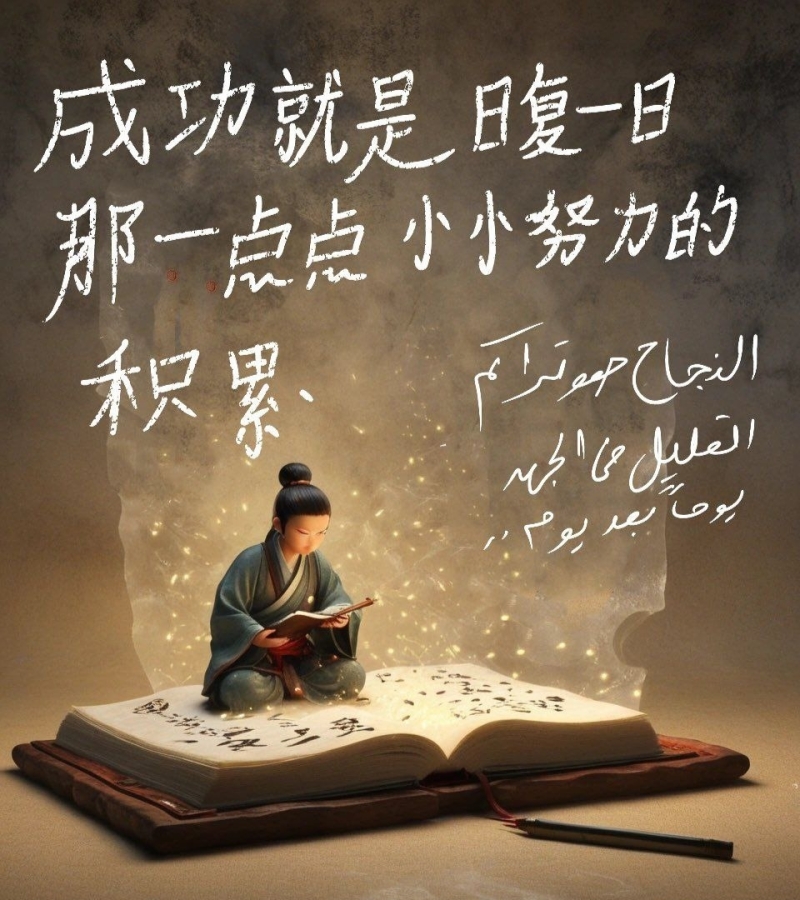 成功就是 日复一日
那一点点 小小努力的
积累.
النجاح هو تراكم
القليل من الجهد
يوماً بعد يوم ..